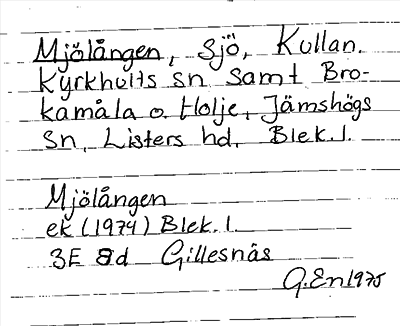 Mjölången, sjö, Kullan.
Kyrkhults sn samt Bro-
kamåla o. Holje, Jämshögs
sn, Listers hd, Blek.l.
Mjölången
ek (1974) Blek.l.
3E 8d Gillesnäs
G.En 1975